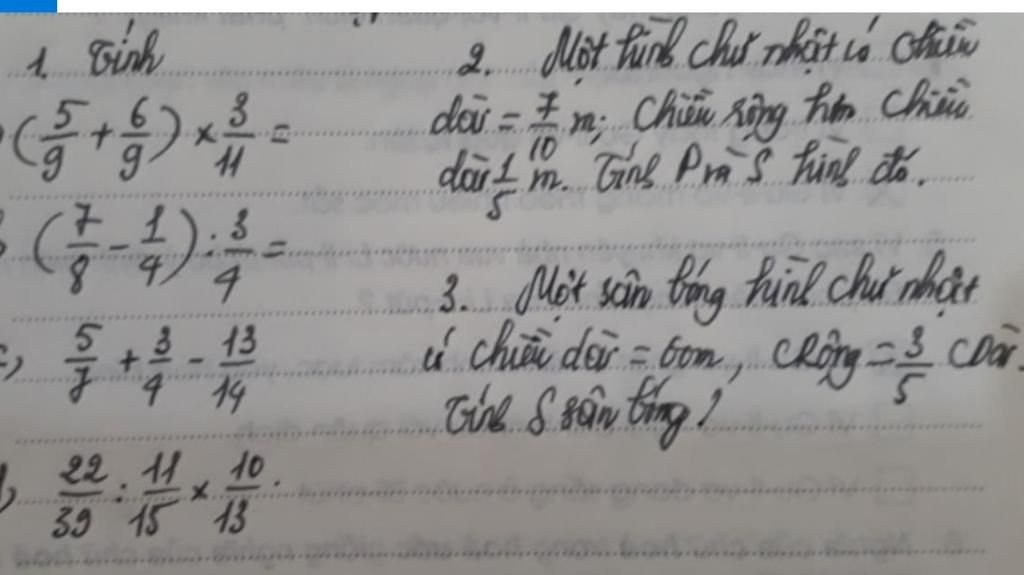 1. Tính
(5/9 + 6/9) × 3/11 =
(7/8 - 1/4) : 3/4 =
c, 5/7 + 3/4 - 13/14
22/39 : 11/15 × 10/13
2. Một hình chư nhật có chiều
dài = 7/10 m; Chiều rộng hơn chiều
dài 1/5 m. Tính P và S hình đó.
3. Một sân bóng hình chư nhật
có chiều dài = 60m, CRộng = 3/5 CDài.
Tính S sân bóng?